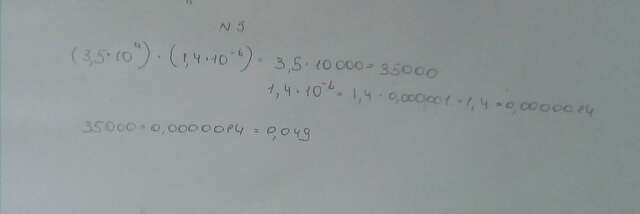 N 5
(3,5·10⁴)·(1,4·10⁻⁶) = 3,5·10000=35000
1,4·10⁻⁶=1,4·0,000001·1,4=0,0000014
35000·0,0000014=0,049